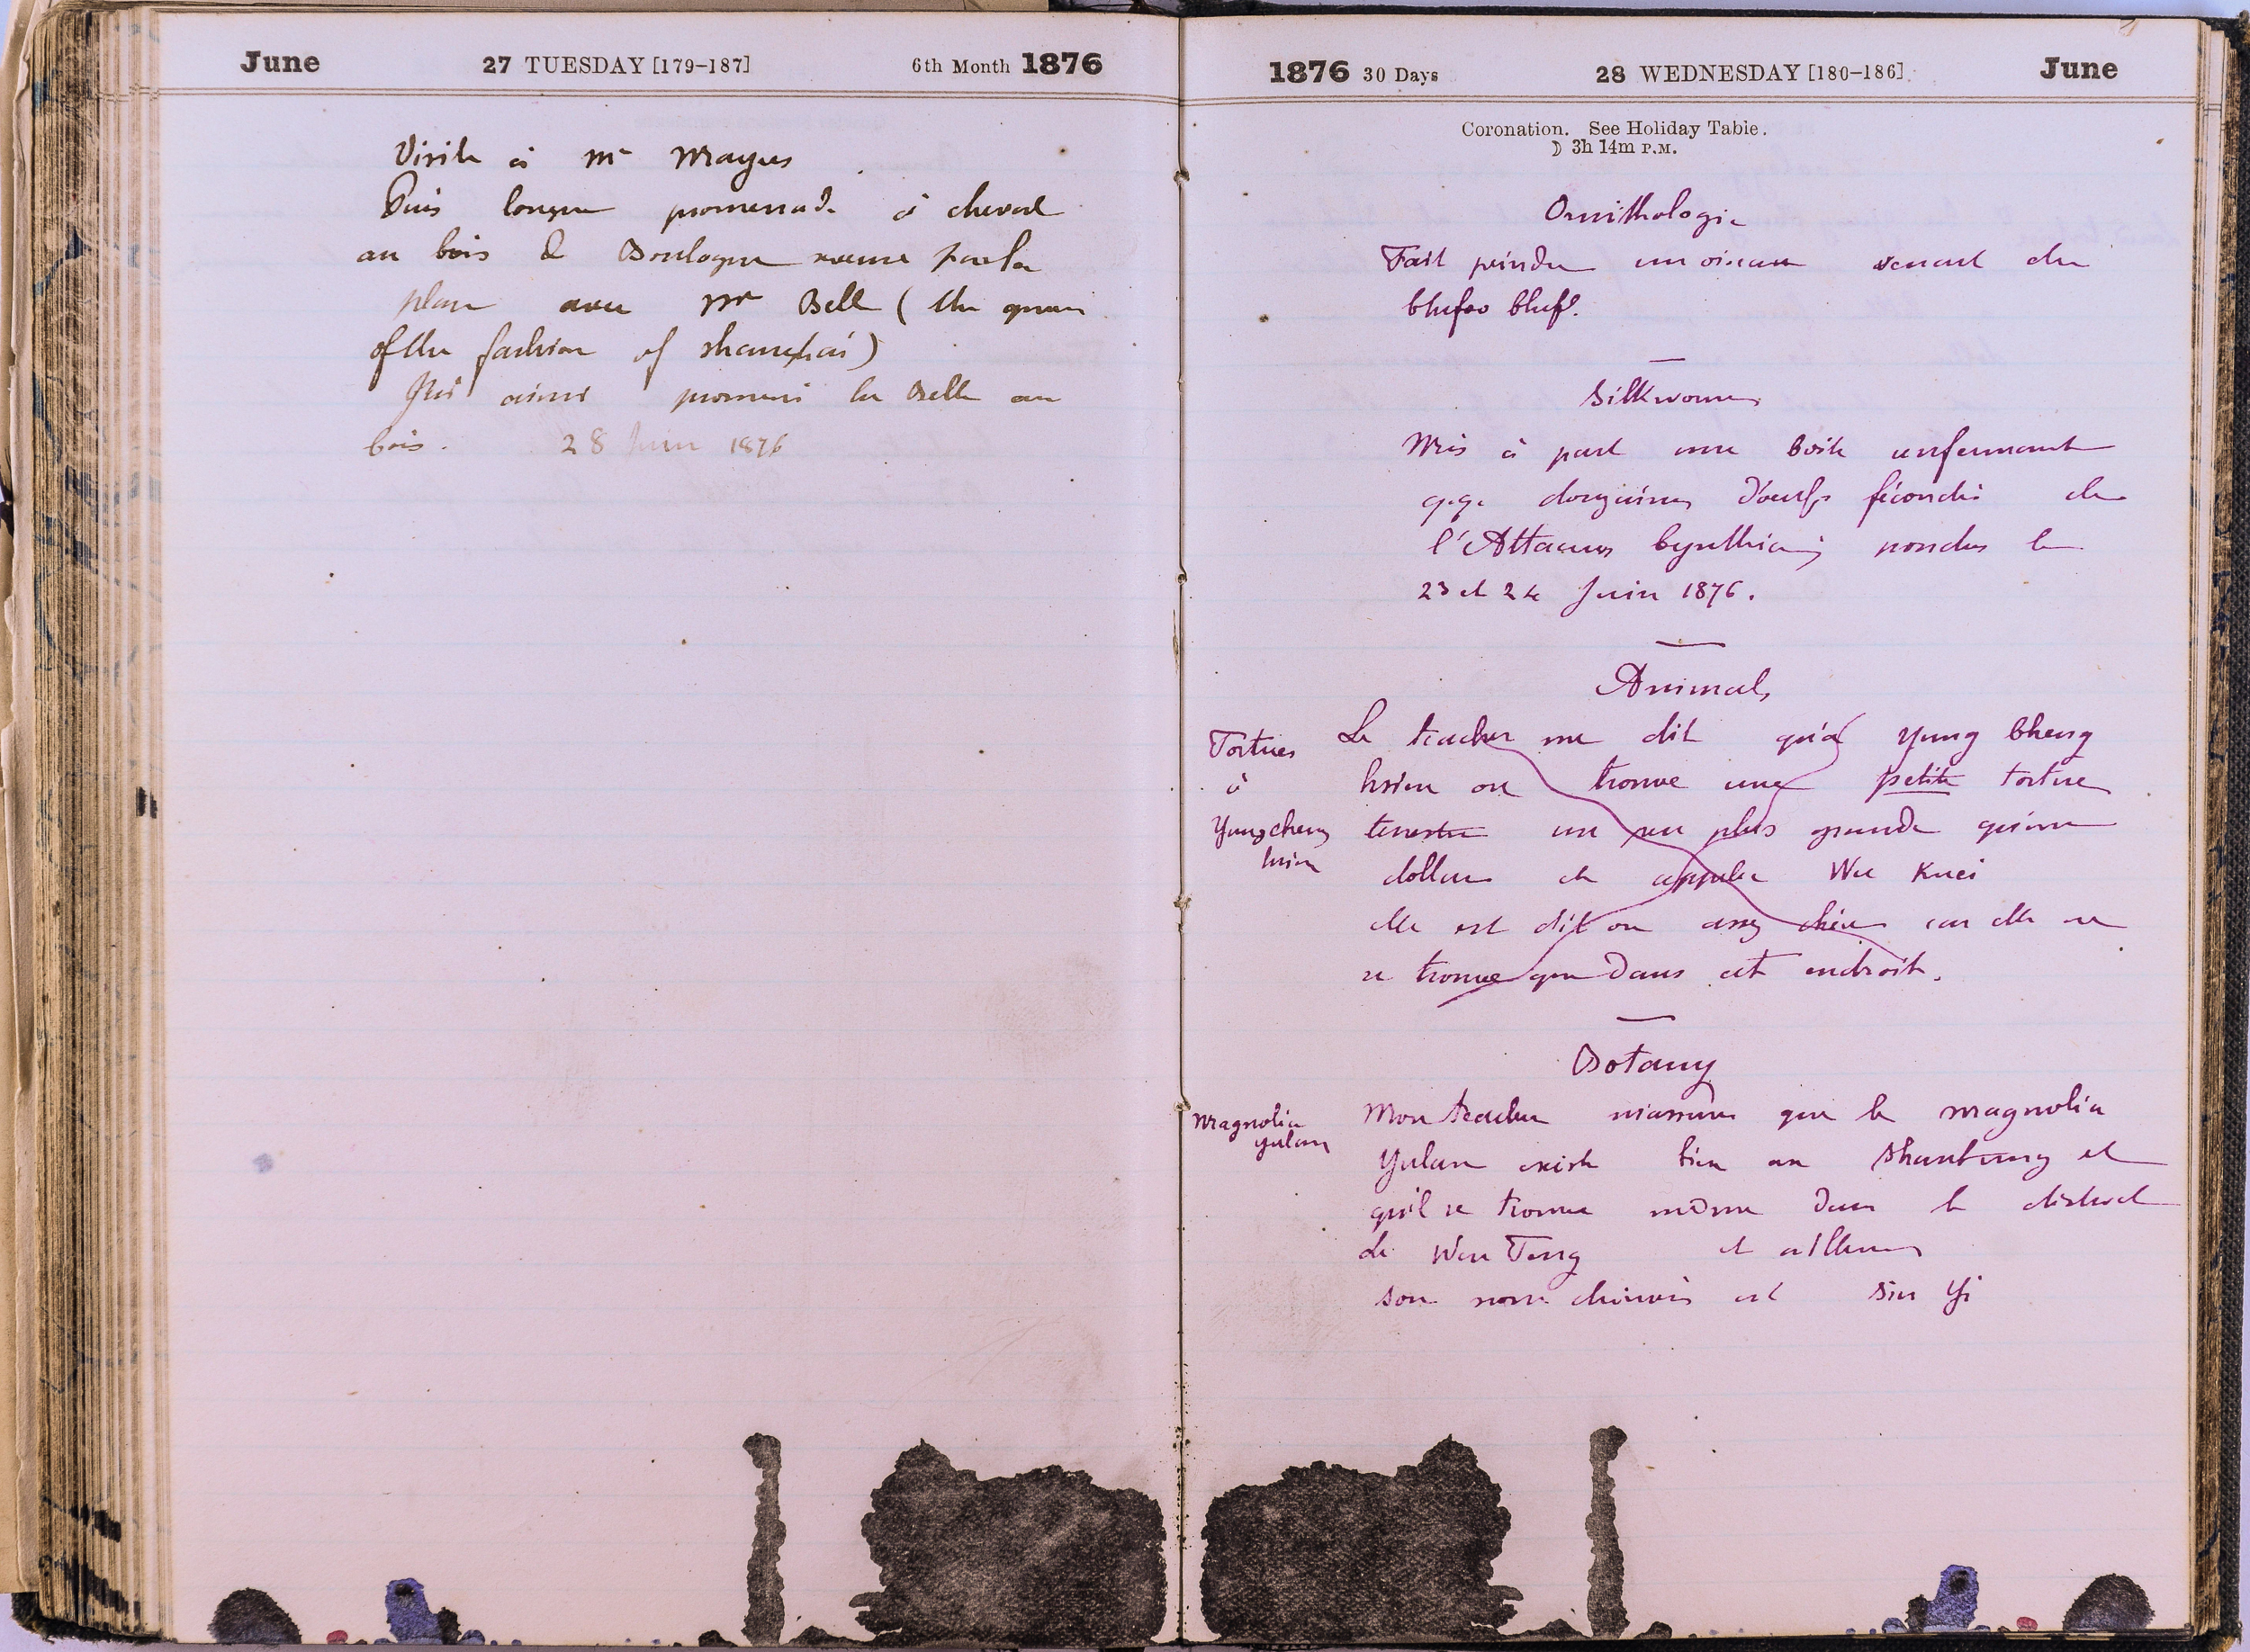 June 27 TUESDAY [179-187] 6th Month 1876
Visite à Mr Mayers
Puis longue promenade à cheval
au bois de Boulogne revenu par la
plage avec Mr Bell (the queen
of the fashion of Shanghai)
J'ai ainsi promené la Belle au
bois. 28 Juin 1876
1876 30 Days 28 WEDNESDAY [180-186]. June
Coronation. See Holiday Table.
☽ 3h 14m P.M.
Ornithologie
Fait peindre un oiseau venant du
Chefoo bluff.
Silkworms
Mis à part une boite renfermant
q.q. douzaines d'oeufs fécondés de
l'Attacus Cynthia; pondus le
23 et 24 Juin 1876.
Animals
Tortues
à
Yungcheng
hsien
Le teacher me dit qu'à Yung Cheng
hsien on trouve une petite tortue
terestre un peu plus grande qu'une
dollar et appelée Wu Kuei
elle est dit on assez chère car elle ne
se trouve que dans cet endroit.
Botany
Magnolia
yulan
Mon teacher m'assure que le magnolia
Yulan existe bien au Shantung et
qu'il se trouve même dans le district
de Wen Teng et ailleurs
son nom chinois est Sin Yi